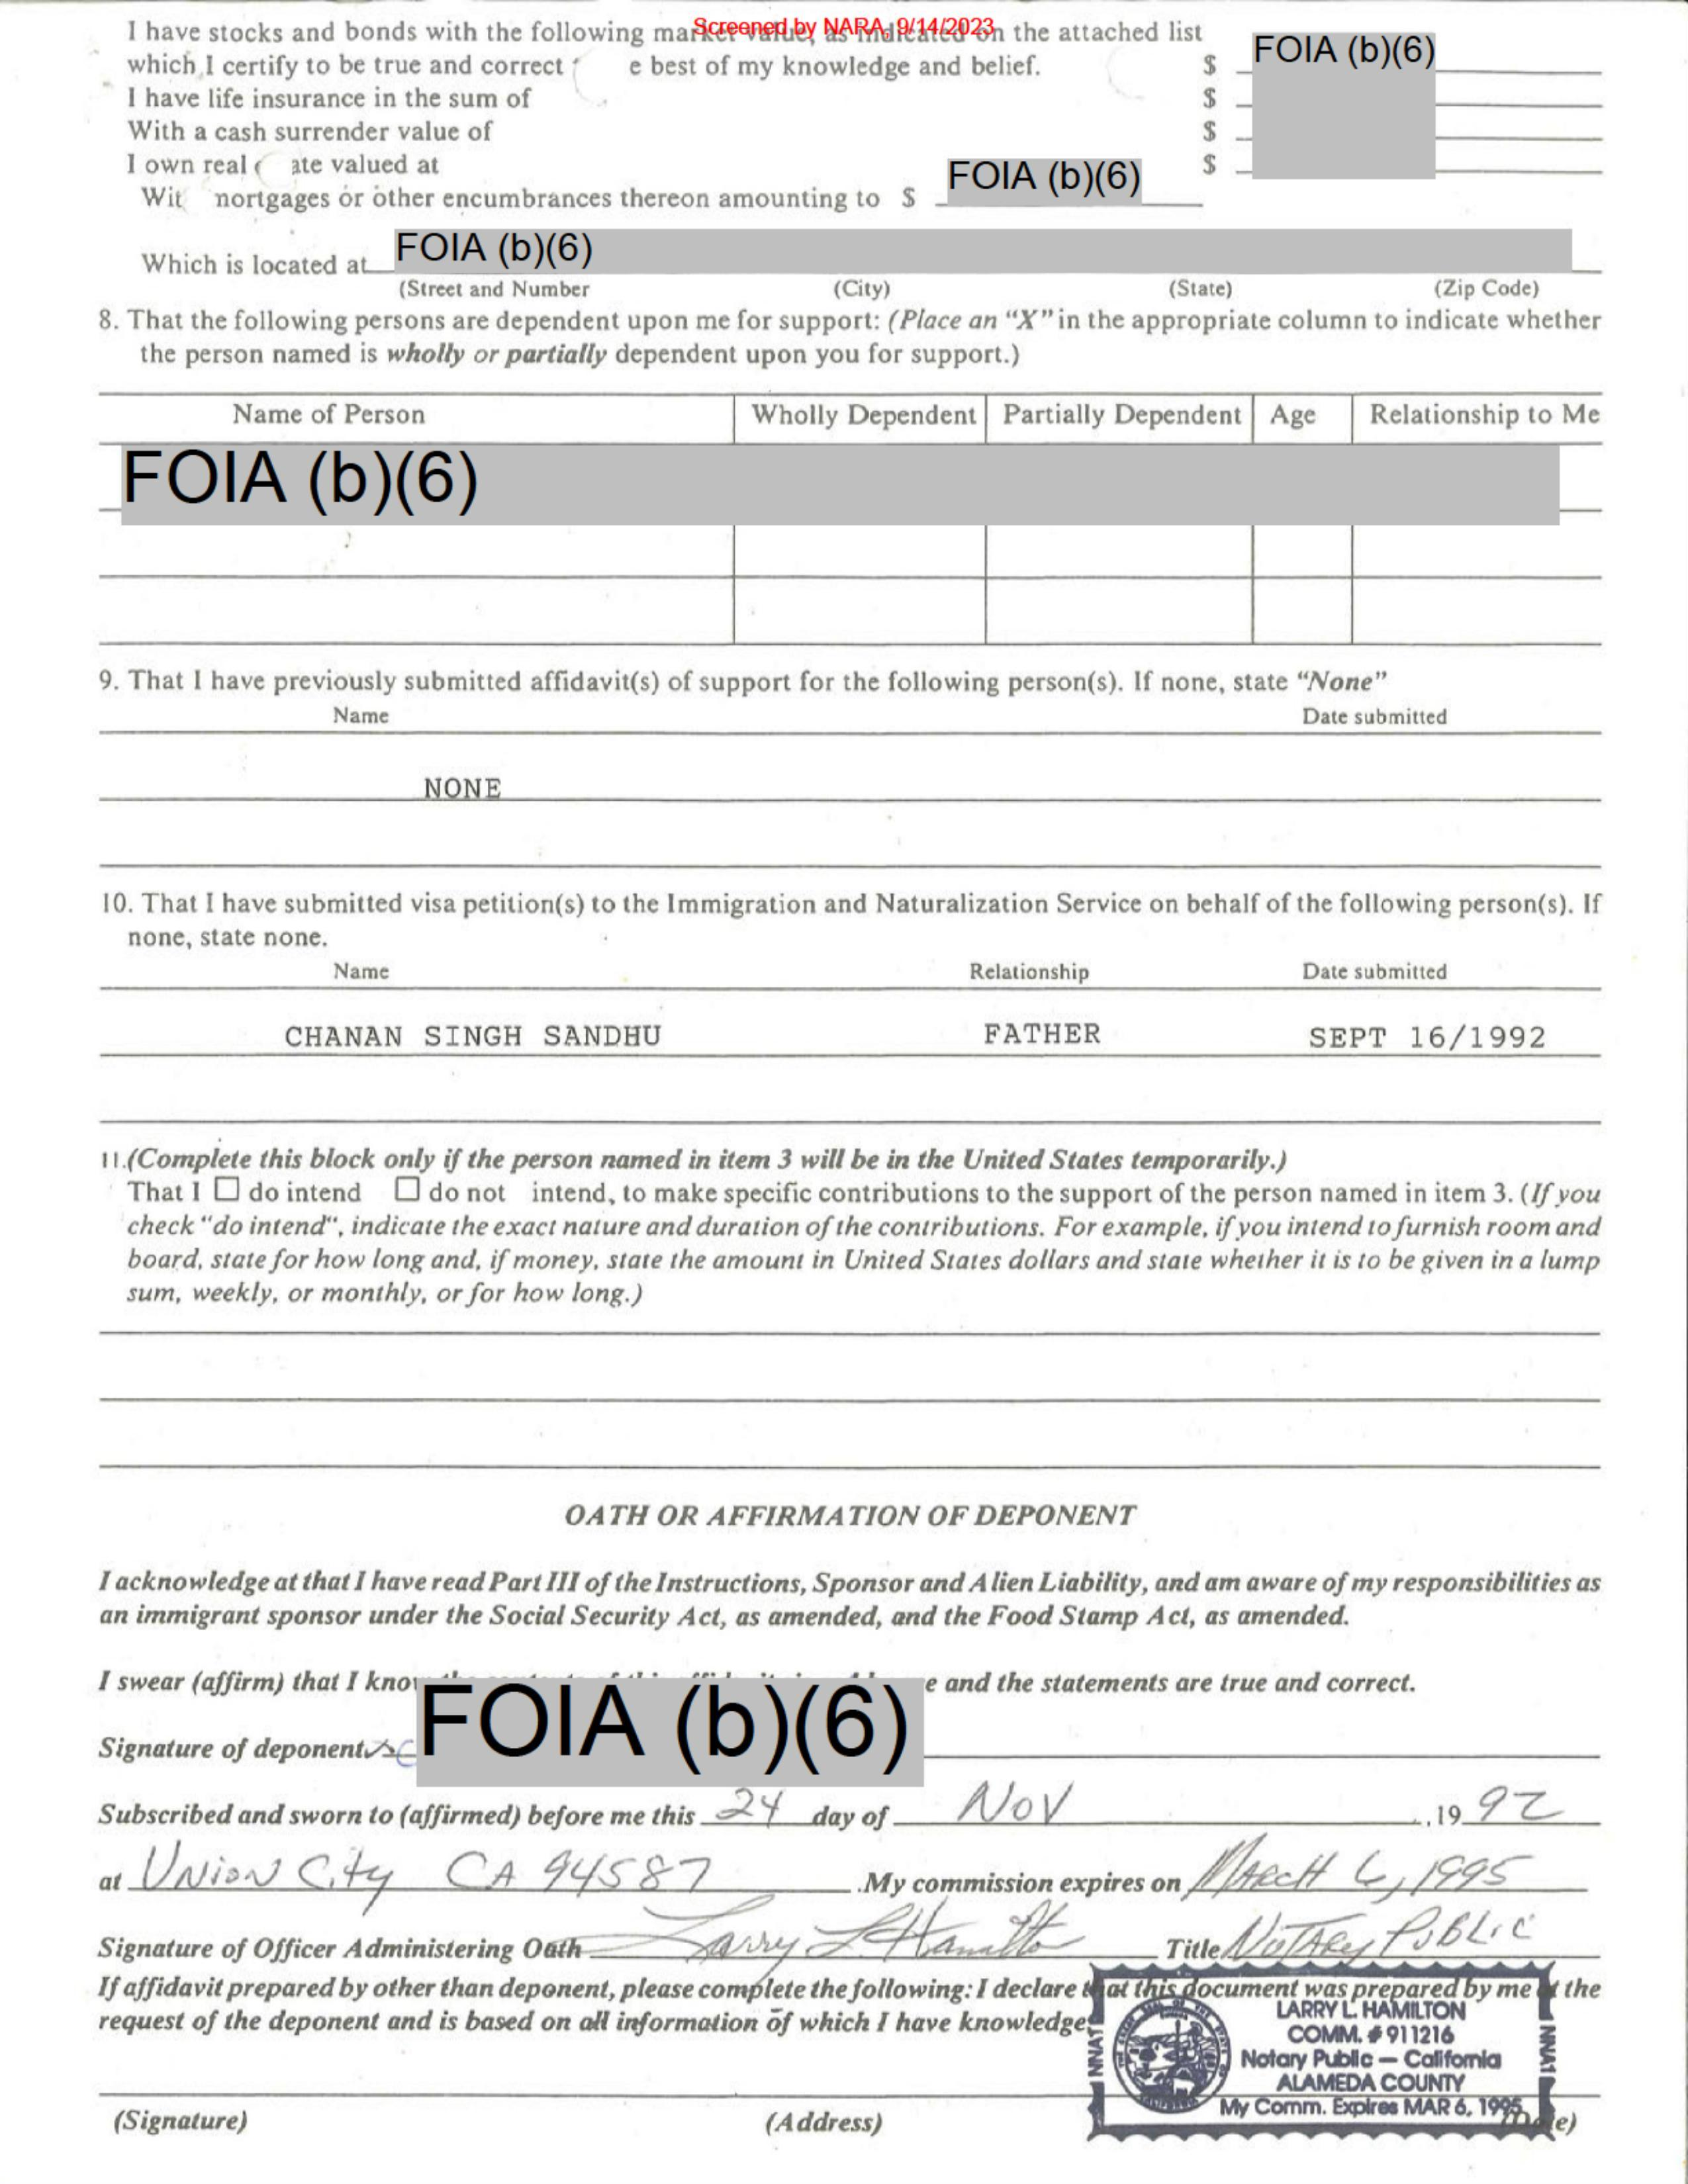 Screened by NARA, 9/14/2023
I have stocks and bonds with the following market value, as indicated on the attached list
which I certify to be true and correct e best of my knowledge and belief. $ FOIA (b)(6)
I have life insurance in the sum of $
With a cash surrender value of $
I own real ate valued at $
Wit nortgages or other encumbrances thereon amounting to $ FOIA (b)(6)
Which is located at FOIA (b)(6)
(Street and Number (City) (State) (Zip Code)
8. That the following persons are dependent upon me for support: (Place an “X” in the appropriate column to indicate whether
the person named is wholly or partially dependent upon you for support.)
Name of Person Wholly Dependent Partially Dependent Age Relationship to Me
FOIA (b)(6)
9. That I have previously submitted affidavit(s) of support for the following person(s). If none, state “None”
Name Date submitted
NONE
10. That I have submitted visa petition(s) to the Immigration and Naturalization Service on behalf of the following person(s). If
none, state none.
Name Relationship Date submitted
CHANAN SINGH SANDHU FATHER SEPT 16/1992
11.(Complete this block only if the person named in item 3 will be in the United States temporarily.)
That I ☐ do intend ☐ do not intend, to make specific contributions to the support of the person named in item 3. (If you
check “do intend“, indicate the exact nature and duration of the contributions. For example, if you intend to furnish room and
board, state for how long and, if money, state the amount in United States dollars and state whether it is to be given in a lump
sum, weekly, or monthly, or for how long.)
OATH OR AFFIRMATION OF DEPONENT
I acknowledge at that I have read Part III of the Instructions, Sponsor and Alien Liability, and am aware of my responsibilities as
an immigrant sponsor under the Social Security Act, as amended, and the Food Stamp Act, as amended.
I swear (affirm) that I know e and the statements are true and correct.
Signature of deponent FOIA (b)(6)
Subscribed and sworn to (affirmed) before me this 24 day of Nov ,19 92
at Union City CA 94587 .My commission expires on MARCH 6, 1995
Signature of Officer Administering Oath Larry L Hamilton Title NOTARY PUBLIC
If affidavit prepared by other than deponent, please complete the following: I declare that this document was prepared by me at the
request of the deponent and is based on all information of which I have knowledge
LARRY L. HAMILTON
COMM. # 911216
Notary Public — California
ALAMEDA COUNTY
My Comm. Expires MAR 6, 1995
NNA1
NNA1
(Signature) (Address) (Date)